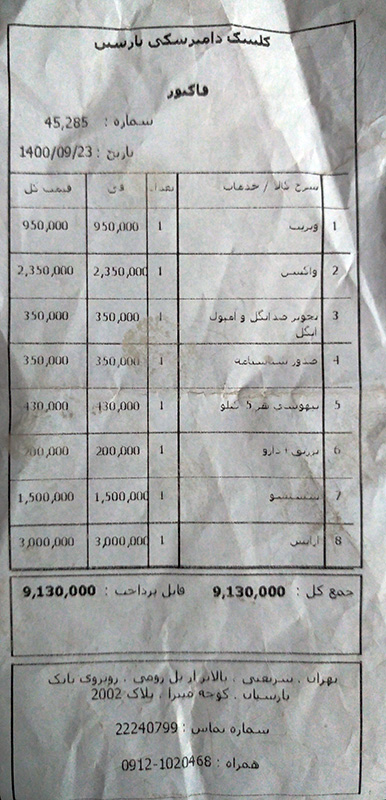 کلینیک دامپزشکی پارسیس
فاکتور
شماره : 45,285
تاریخ : 1400/09/23
شرح کالا / خدمات تعداد فی قیمت کل
1 ویزیت 1 950,000 950,000
2 واکسن 1 2,350,000 2,350,000
3 تجویز ضد انگل و آمپول انگل 1 350,000 350,000
4 صدور شناسنامه 1 350,000 350,000
5 بیهوشی هر 5 کیلو 1 430,000 430,000
6 تزریق + دارو 1 200,000 200,000
7 شستشو 1 1,500,000 1,500,000
8 آرایش 1 3,000,000 3,000,000
جمع کل : 9,130,000 قابل پرداخت : 9,130,000
تهران ، شریعتی ، بالاتر از پل رومی ، روبروی بانک
پارسیان ، کوچه میترا ، پلاک 2002
شماره تماس : 22240799
همراه : 0912-1020468